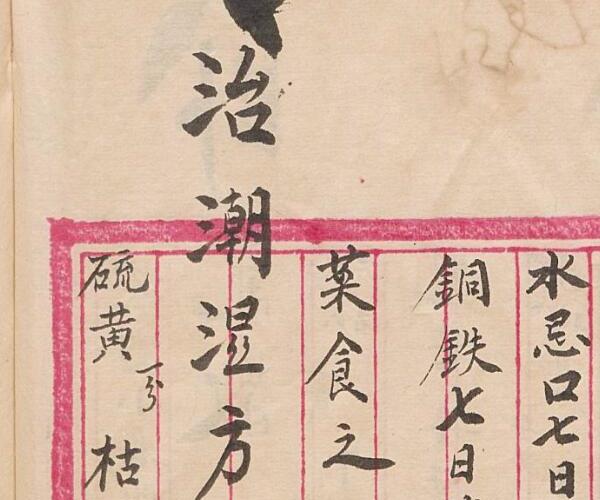 水忌口七日
銅鉄七日
菜食之
治潮湿方
硫黄一分枯